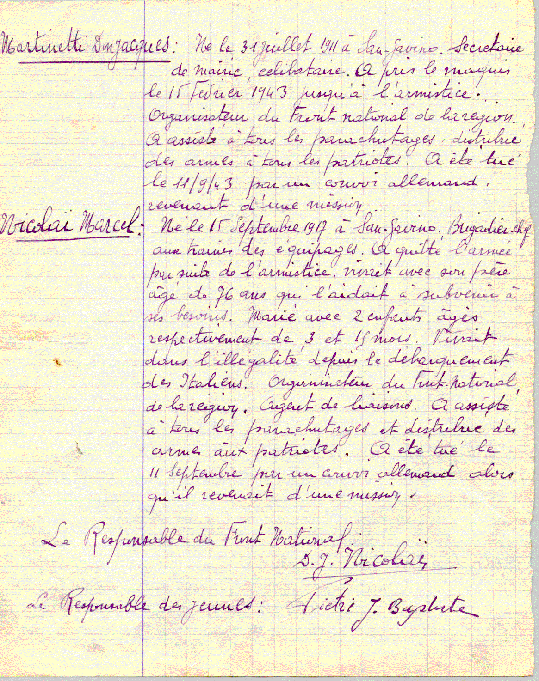 Martinetti Donjacques: Né le 31 juillet 1911 à San-Gavino. Secrétaire
de mairie, célibataire. A pris le maquis
le 15 Février 1943 jusqu'à l'armistice.
Organisateur du Front national de la région.
A assisté à tous les parachutages, distribué
des armes à tous les patriotes. A été tué
le 11/9/43 par un convoi allemand,
revenant d'une mission.
Nicolaï Marcel: Né le 15 Septembre 1917 à San-Gavino, Brigadier
aux trains des équipages. A quitté l'armée
par suite de l'armistice, vivait avec son père
âgé de 76 ans qui l'aidait à subvenir à
ses besoins. Marié avec 2 enfants âgés
respectivement de 3 et 15 mois. Vivait
dans l'illégalité depuis le débarquement
des Italiens. Organisateur du Front-National
de la région. Agent de liaisons. A assisté
à tous les parachutages et distribué des
armes aux patriotes. A été tué le
11 Septembre par un convoi allemand alors
qu'il revenait d'une mission.
Le Responsable du Front National
D. J. Nicolaï
Le Responsable des jeunes: Pietri J. Baptiste